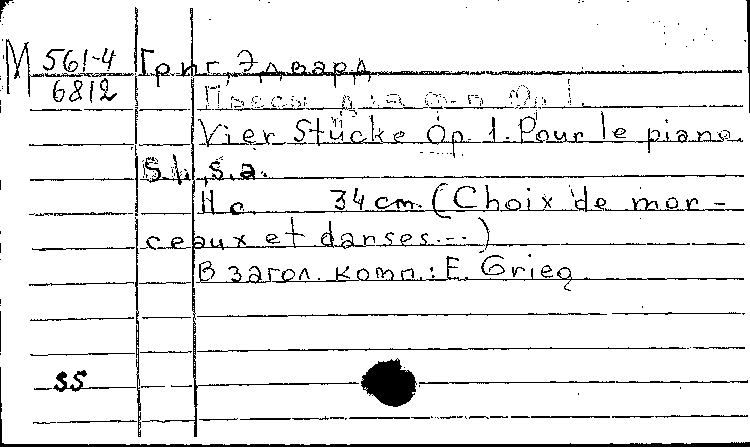 М 561-4 Григ, Эдвард
6812 Пьесы для ф-п Op 1.
Vier Stücke Op. 1. Pour le piano.
S.l., s.a.
11 с. 34 cm. (Choix de mor-
ceaux et danses...)
В загол. комп.: E. Grieg.
55